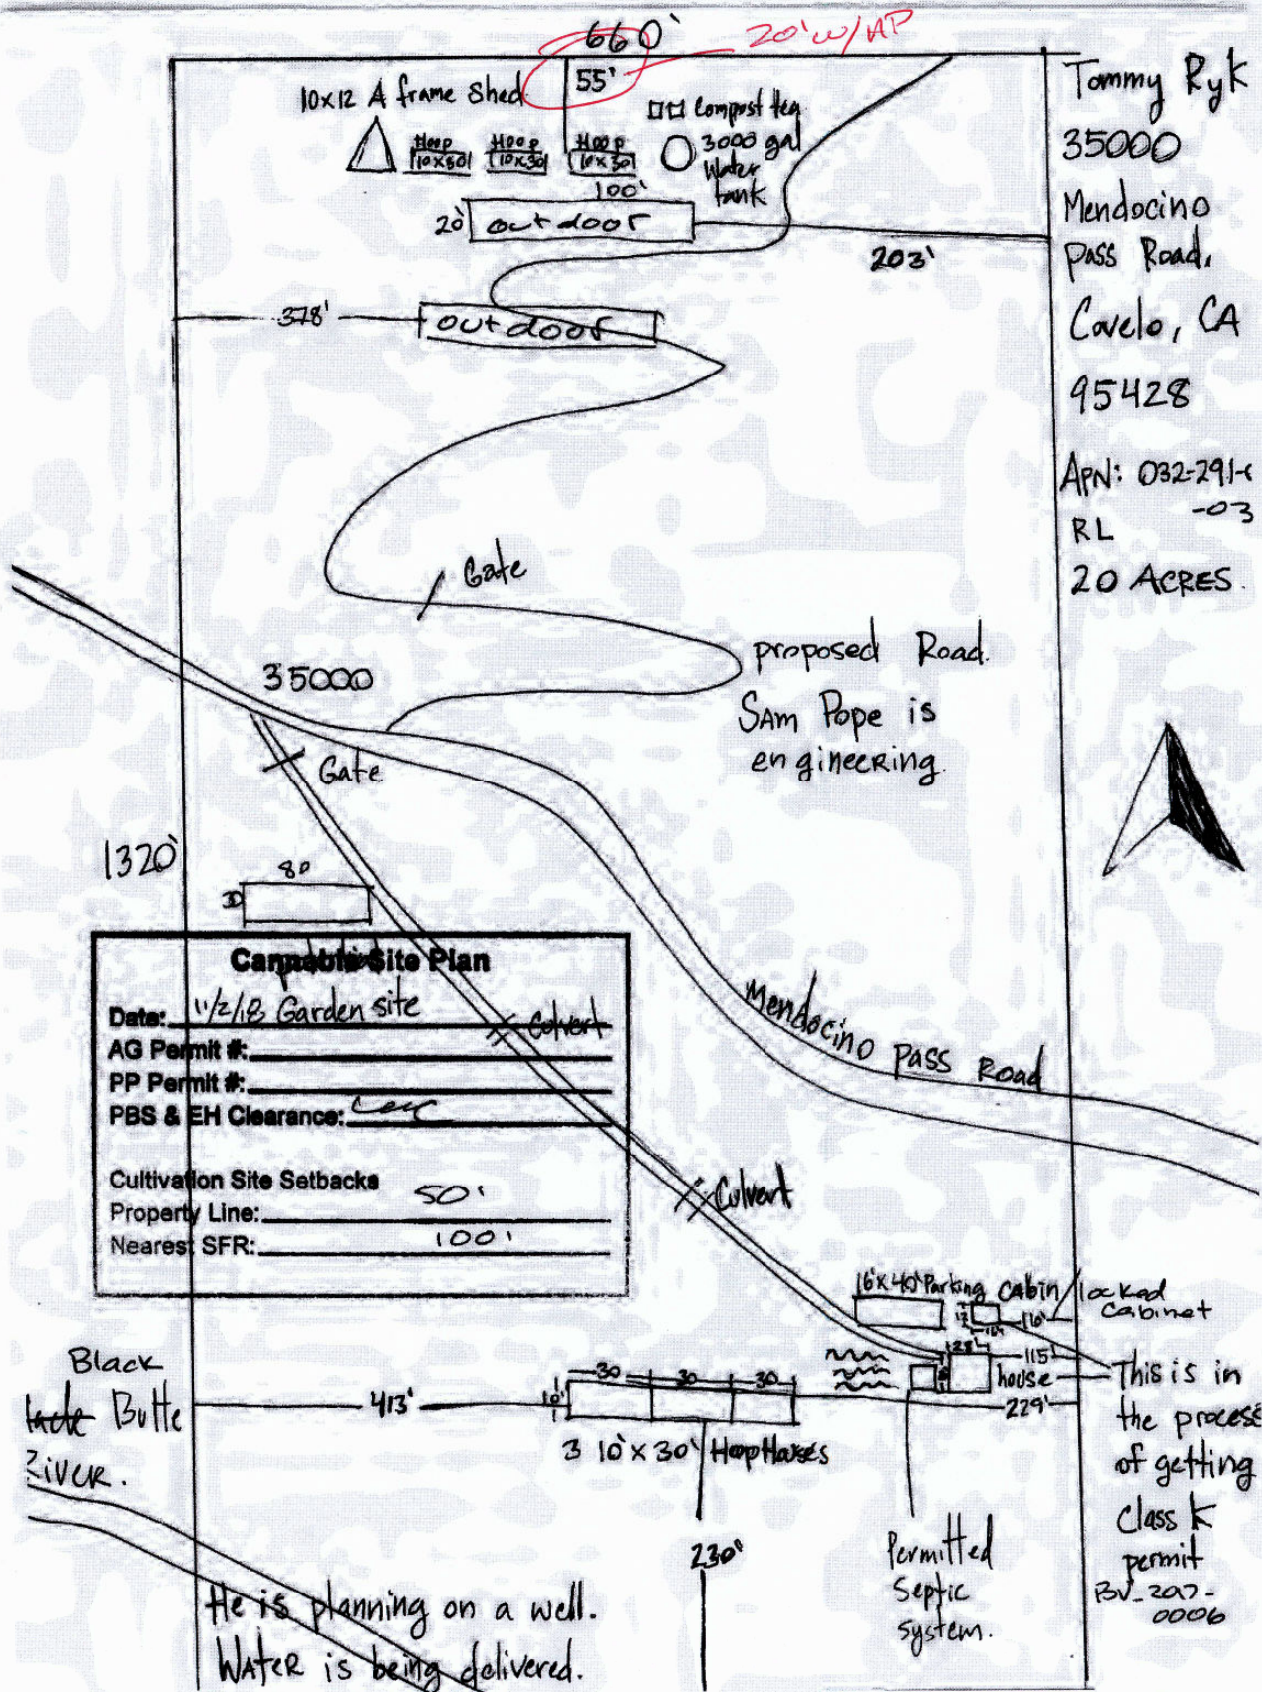 660'
20' w/ AP
55'
10x12 A frame Shed
Compost tea
3000 gal
Water
tank
Hoop
Hoop
10x30
Hoop
10x30
100'
20'
outdoor
203'
378'
outdoor
Tommy Ryk
35000
Mendocino
Pass Road,
Covelo, CA
95428
APN: 032-291-
-03
RL
20 ACRES.
Gate
proposed Road.
Sam Pope is
engineering.
35000
Gate
1320'
80
Cannabis Site Plan
Date: 11/2/18 Garden site
Culvert
AG Permit #:
PP Permit #:
PBS & EH Clearance:
Cultivation Site Setbacks
Property Line: 50'
Nearest SFR: 100'
Mendocino Pass Road
Culvert
16'x40' Parking
Cabin / locked
cabinet
16'
128'
115'
house
229'
This is in
the process
of getting
Class K
permit
BV_2017-
0006
Black
Butte
River.
413'
10'
30
30
30
3 10'x30' HoopHouses
230'
Permitted
Septic
system.
He is planning on a well.
Water is being delivered.